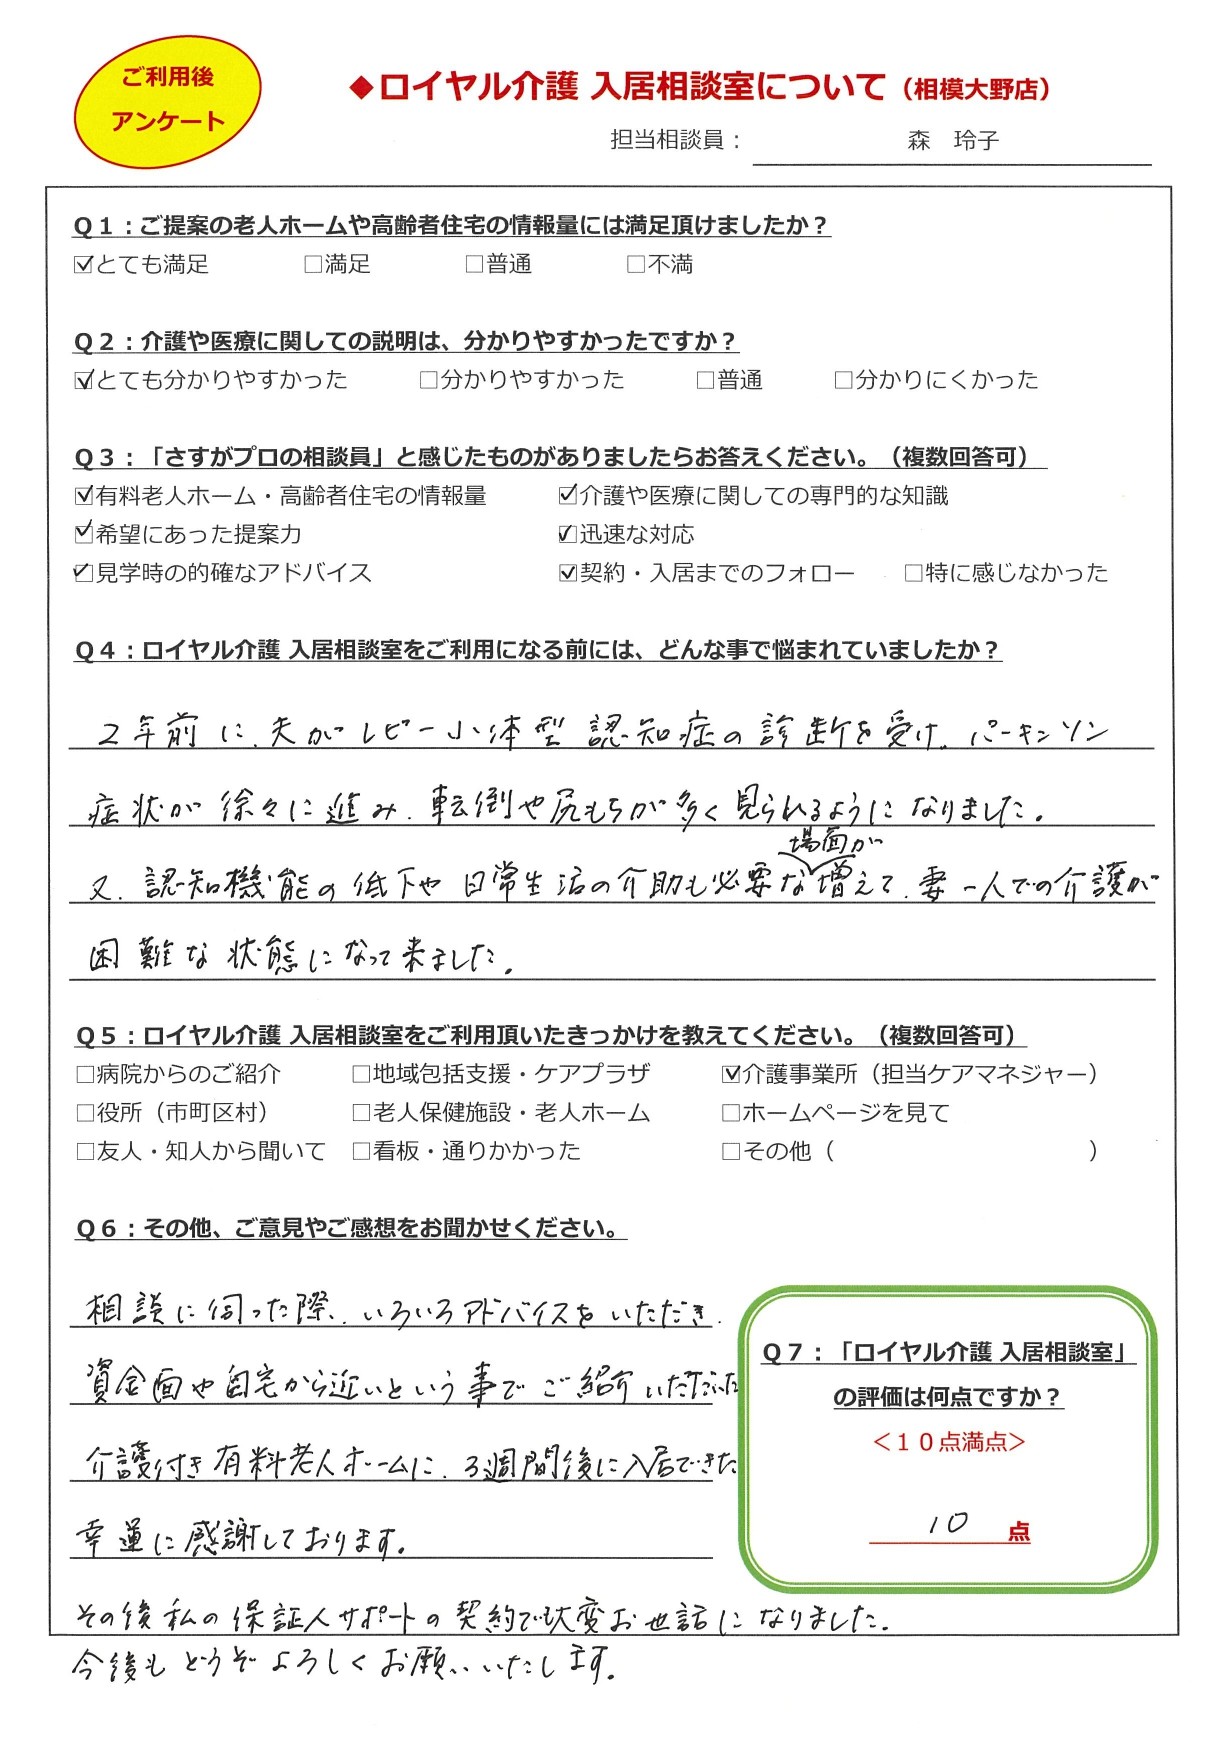 ご利用後
アンケート
◆ロイヤル介護 入居相談室について（相模大野店）
担当相談員： 森　玲子
Q１：ご提案の老人ホームや高齢者住宅の情報量には満足頂けましたか？
☑とても満足 □満足 □普通 □不満
Q２：介護や医療に関しての説明は、分かりやすかったですか？
☑とても分かりやすかった □分かりやすかった □普通 □分かりにくかった
Q３：「さすがプロの相談員」と感じたものがありましたらお答えください。（複数回答可）
☑有料老人ホーム・高齢者住宅の情報量 ☑介護や医療に関しての専門的な知識
☑希望にあった提案力 ☑迅速な対応
☑見学時の的確なアドバイス ☑契約・入居までのフォロー □特に感じなかった
Q４：ロイヤル介護 入居相談室をご利用になる前には、どんな事で悩まれていましたか？
２年前に、夫がレビー小体型認知症の診断を受け、パーキンソン
症状が徐々に進み、転倒や尻もちが多く見られるようになりました。
場面が
又、認知機能の低下や日常生活の介助も必要な増えて、妻一人での介護が
困難な状態になって来ました。
Q５：ロイヤル介護 入居相談室をご利用頂いたきっかけを教えてください。（複数回答可）
□病院からのご紹介 □地域包括支援・ケアプラザ ☑介護事業所（担当ケアマネジャー）
□役所（市町区村） □老人保健施設・老人ホーム □ホームページを見て
□友人・知人から聞いて □看板・通りかかった □その他（ ）
Q６：その他、ご意見やご感想をお聞かせください。
相談に伺った際、いろいろアドバイスをいただき、
資金面や自宅から近いという事でご紹介いただいた
介護付き有料老人ホームに、3週間後に入居できた
幸運に感謝しております。
その後私の保証人サポートの契約で大変お世話になりました。
今後もどうぞよろしくお願いいたします。
Q７：「ロイヤル介護 入居相談室」
の評価は何点ですか？
＜１０点満点＞
10 点